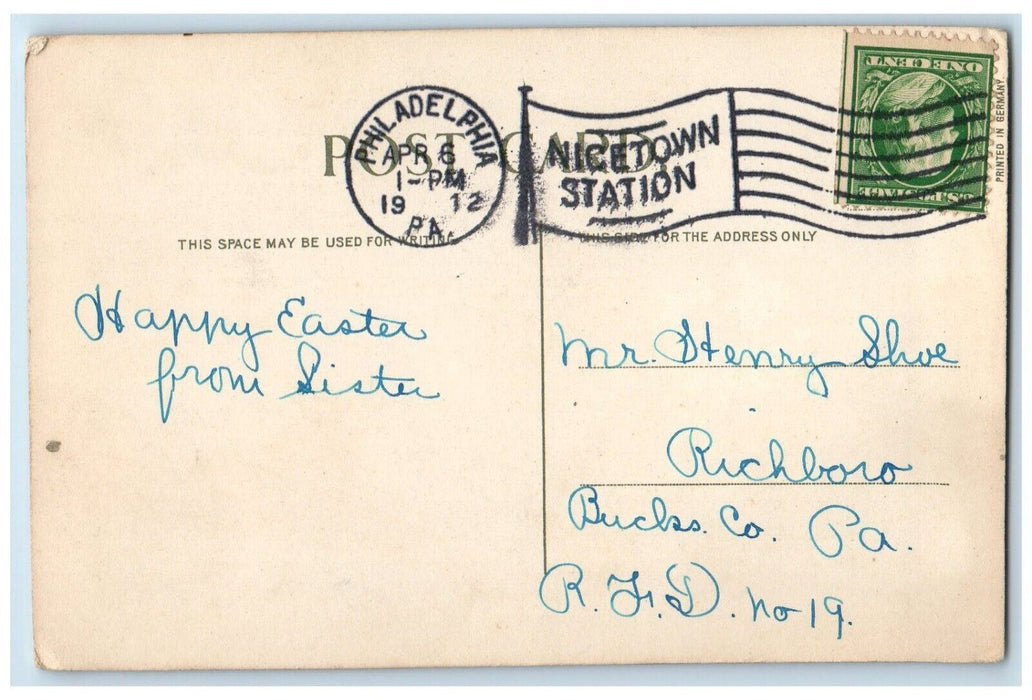 POST CARD.
PHILADELPHIA
APR 6
1-PM
19 12
PA
NICETOWN
STATION
ONE CENT
U.S. POSTAGE
PRINTED IN GERMANY
THIS SPACE MAY BE USED FOR WRITING
THIS SIDE FOR THE ADDRESS ONLY
Happy Easter
from Sister
Mr. Henry Shoe
Richboro
Bucks. Co. Pa.
R. F. D. No 19.